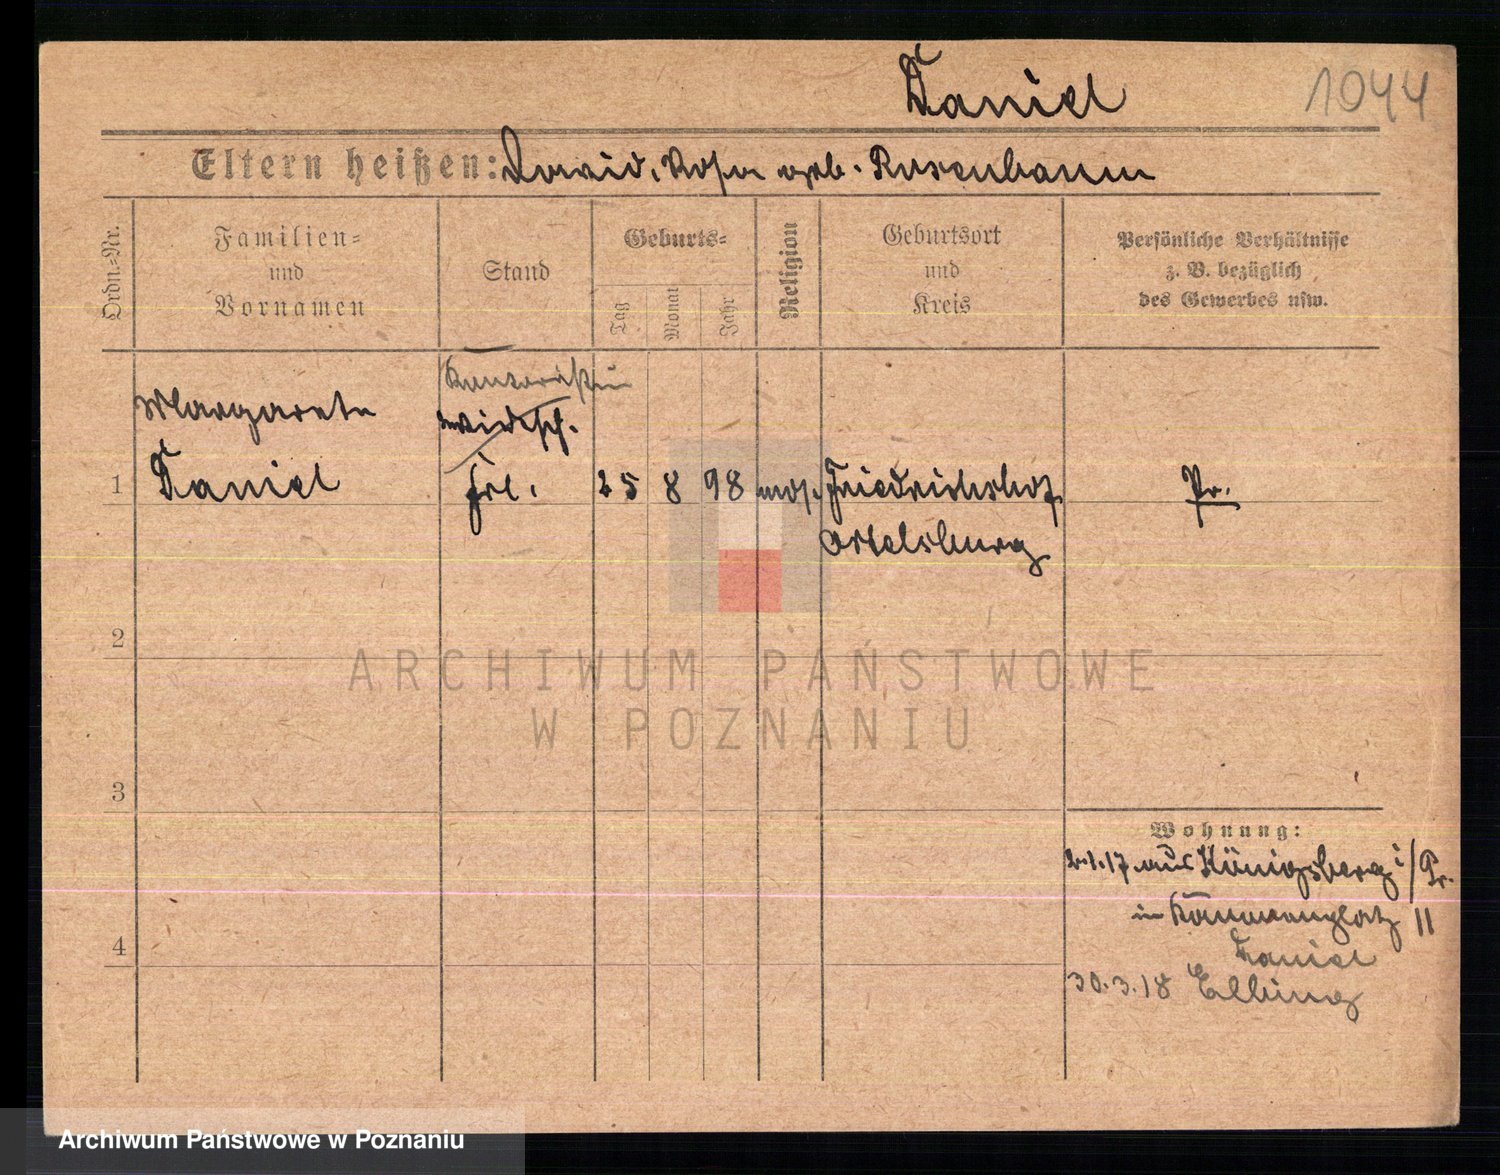 Daniel
1044
Eltern heißen: David, Rosa geb. Rosenbaum
Ordn.-Nr.
Familien-
und
Vornamen
Stand
Geburts-
Tag
Monat
Jahr
Religion
Geburtsort
und
Kreis
Persönliche Verhältnisse
z. B. bezüglich
des Gewerbes usw.
Kontoristin
Margarete
wirtsch.
1 Daniel Frl. 25 8 98 mos. Friedrichshof Pr.
Ortelsburg
2
ARCHIWUM PAŃSTWOWE
W POZNANIU
3
Wohnung:
2.1.17 aus Königsberg i/Pr.
in 11
4
Daniel
30.3.18 Elbing
Archiwum Państwowe w Poznaniu